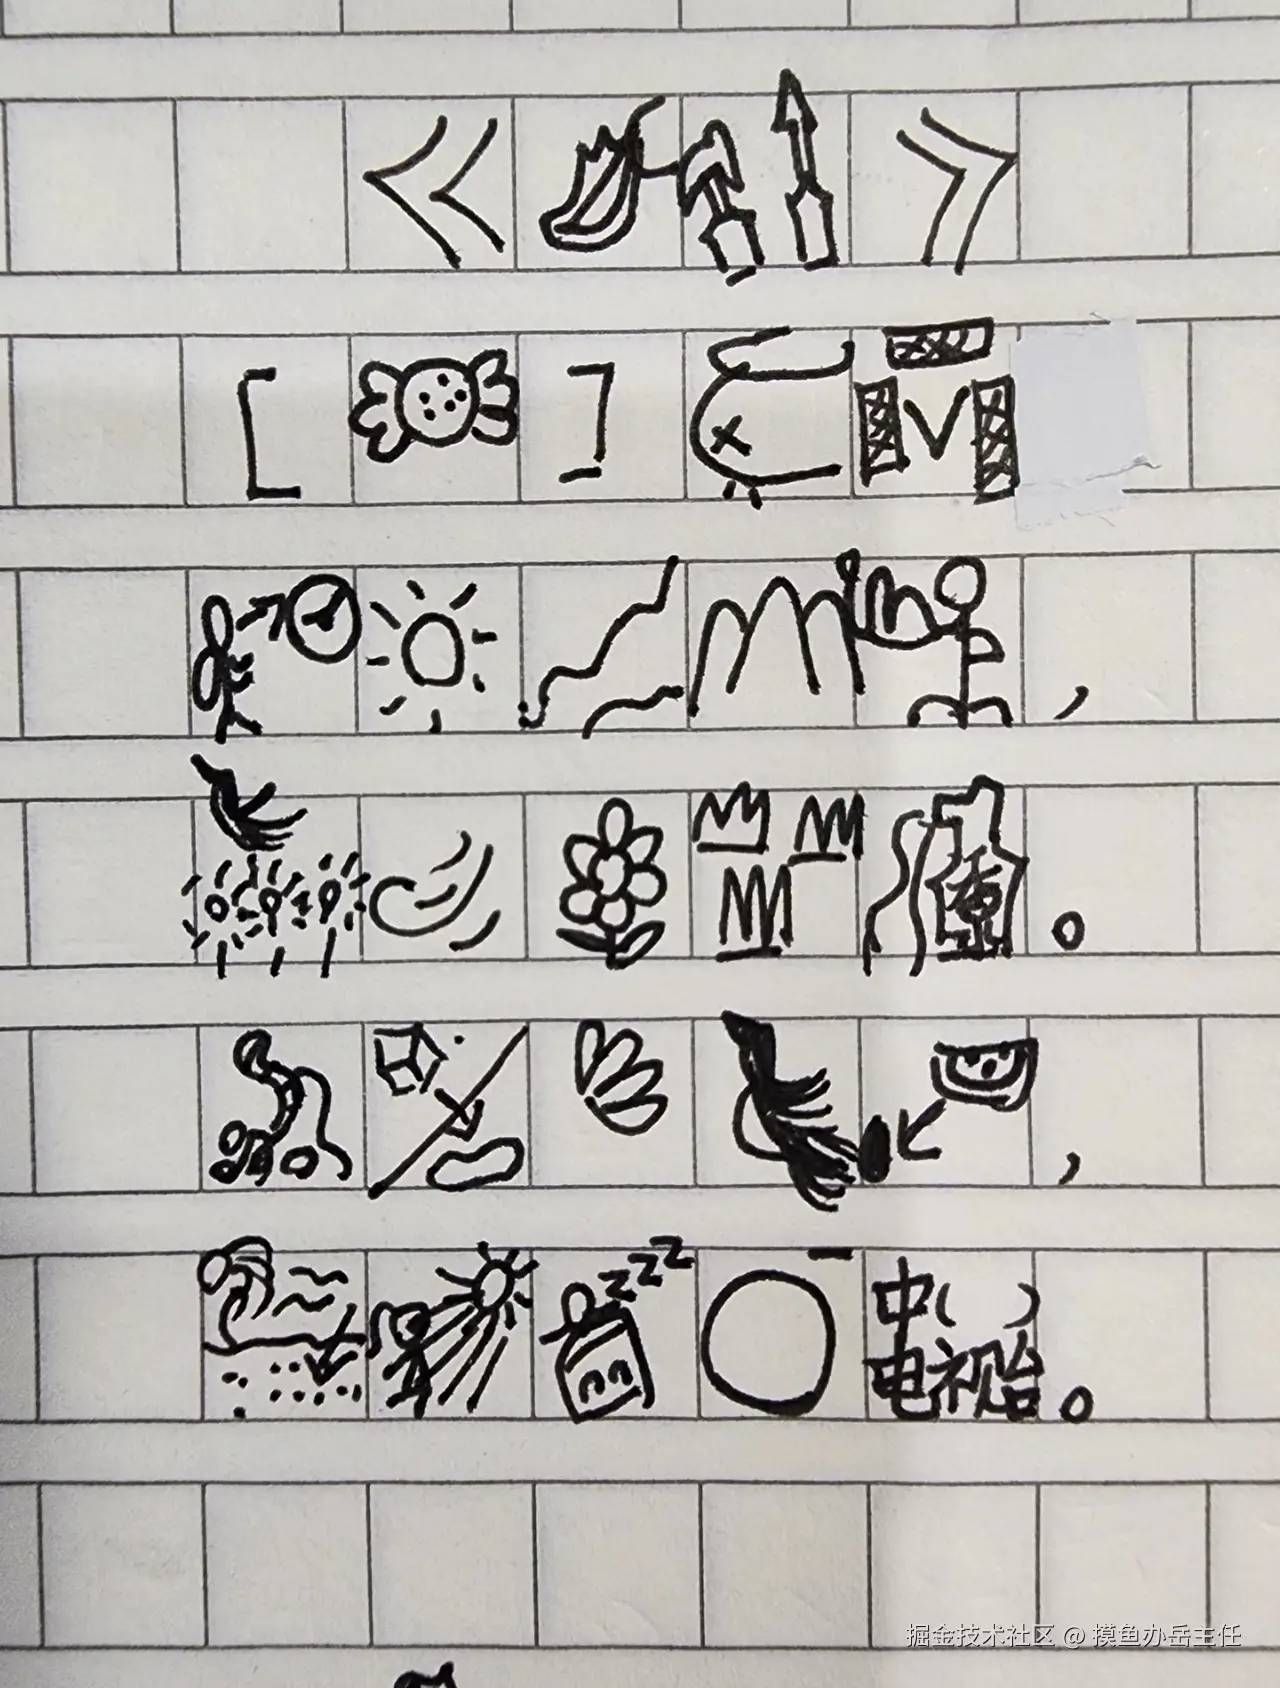 《 》
[ ]
，
。
zzz
中( )
电视台。
掘金技术社区 @ 摸鱼办岳主任